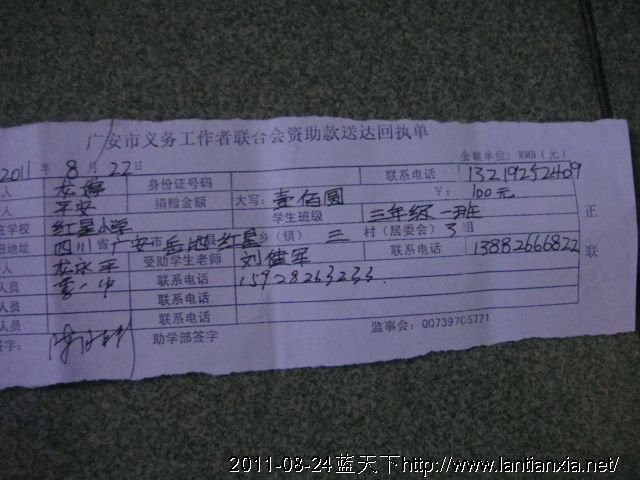 广安市义务工作者联合会资助款送达回执单
金额单位：RMB（元）
2011 年 8 月 22 日
人 龙婷 身份证号码 联系电话 13219252409
人 平安 捐赠金额 大写：壹佰圆 ￥：100元
在学校 红星小学 学生班级 三年级一班
细地址 四川省广安市岳池县红星乡（镇） 三 村（居委会）3组
人 龙永平 受助学生老师 刘健军 联系电话 13882666822
人员 联系电话 15928263233.
人员 联系电话
人员 联系电话
签字： 助学部签字 监事会：QQ739705771
正
联
2011-08-24蓝天下http://www.lantianxia.net/